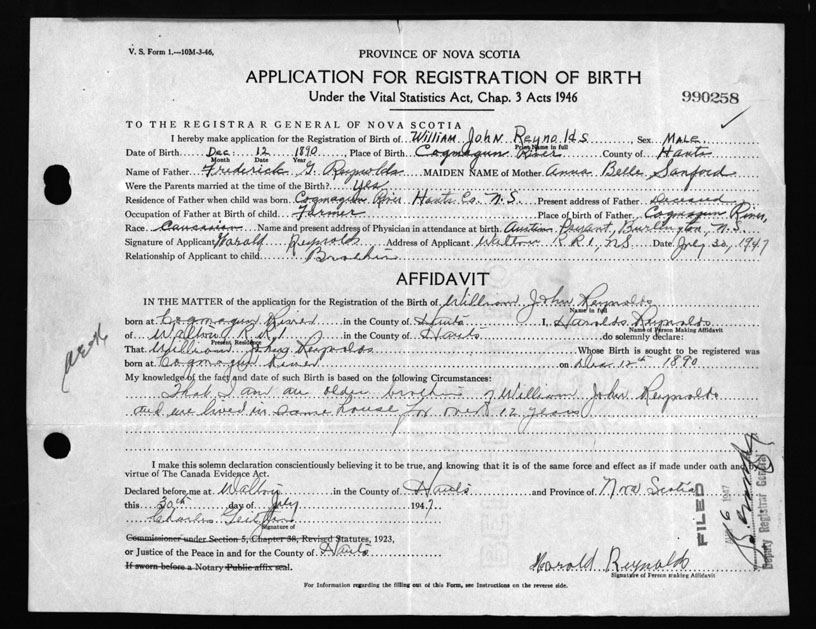 V. S. Form 1.—10M-3-46.
PROVINCE OF NOVA SCOTIA
APPLICATION FOR REGISTRATION OF BIRTH
Under the Vital Statistics Act, Chap. 3 Acts 1946
990258
TO THE REGISTRAR GENERAL OF NOVA SCOTIA
I hereby make application for the Registration of Birth of William John Reynolds, Sex Male
Print Name in full
Date of Birth Dec. 12 1890 Place of Birth Cogmagun River County of Hants
Month Date Year
Name of Father Frederick G. Reynolds MAIDEN NAME of Mother Anna Belle Sanford
Were the Parents married at the time of the Birth? Yes
Residence of Father when child was born Cogmagun River Hants Co. N.S. Present address of Father Deceased
Occupation of Father at Birth of child Farmer Place of birth of Father Cogmagun River,
Race Caucasian Name and present address of Physician in attendance at birth Austin Bryant, Burlington, N.S.
Signature of Applicant Harold Reynolds Address of Applicant Walton R R 1, NS Date July 30, 1947
Relationship of Applicant to child Brother
AFFIDAVIT
IN THE MATTER of the application for the Registration of the Birth of William John Reynolds
Name in full
born at Cogmagun River in the County of Hants I, Harold Reynolds
Name of Person Making Affidavit
of Walton R.R.1 in the County of Hants do solemnly declare:
Present Residence
That William John Reynolds Whose Birth is sought to be registered was
born at Cogmagun River on Dec 12th 1890
My knowledge of the fact and date of such Birth is based on the following Circumstances:
That I am an older brother of William John Reynolds
and we lived in same house for over 12 years
I make this solemn declaration conscientiously believing it to be true, and knowing that it is of the same force and effect as if made under oath and by
virtue of The Canada Evidence Act.
Declared before me at Walton in the County of Hants and Province of Nova Scotia
this 30th day of July 1947
Charles
Signature of
Commissioner under Section 5, Chapter 38, Revised Statutes, 1923,
or Justice of the Peace in and for the County of Hants
If sworn before a Notary Public affix seal.
Harold Reynolds
Signature of Person making Affidavit
For Information regarding the filling out of this Form, see Instructions on the reverse side.
FILED
1947
Deputy Registrar General